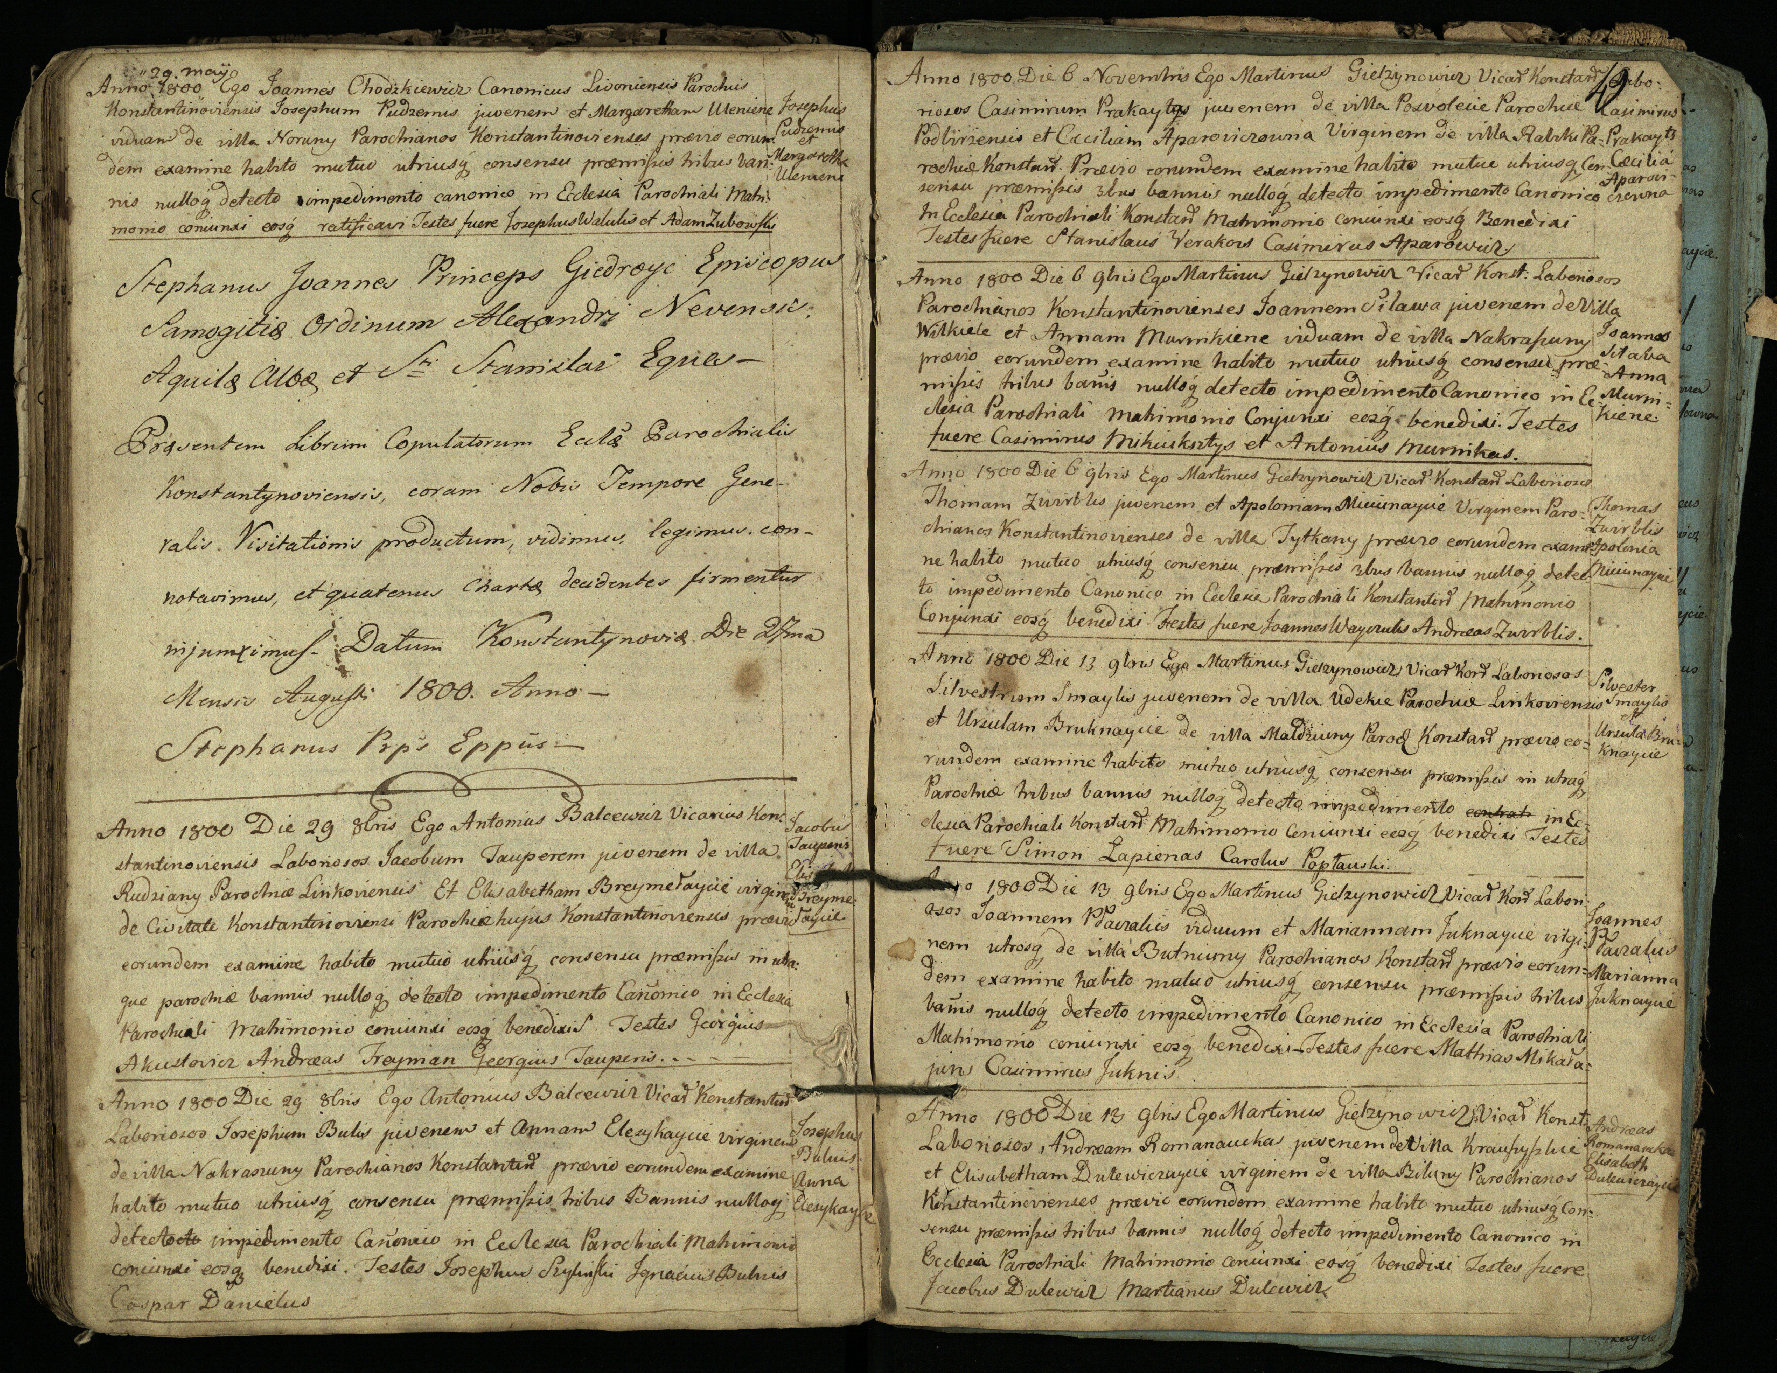 29. maÿ
Anno 1800 Ego Joannes Chodzkiewicz Canonicus Livoniensis Parochus
Konstantinoviensis Josephum Pudzemus juvenem et Margaretham Uleniene
viduam de villa Noruny Parochianos Konstantinovienses prævio eorun
dem examine habito mutuo utriusq consensu præmissis tribus ban-
nis nulloq detecto impedimento canonico in Eclesia Parochiali Matri
monio coniunxi eosq ratificavi Testes fuere Josephus Walulis et Adam Zubowski
Josephus
Pudzemus
et
Margaretha
Uleniene
Stephanus Joannes Princeps Giedroyc Episcopus
Samogitiæ Ordinum Alexandri Nevensis,
Aquilæ Albæ, et Sti Stanislai Eques—
Præsentem Librum Copulatorum Eclæ Parochialis
Konstantynoviensis, coram Nobis Tempore Gene-
ralis Visitationis productum, vidimus, legimus, con-
notavimus, et quatenus Chartæ decidentes firmentur
injunximus- Datum Konstantynoviæ Die 27ma
Mensis Augusti 1800. Anno—
Stephanus Pps Eppus—
Anno 1800 Die 29 8bris Ego Antonius Balcewicz Vicarius Kon
stantinoviensis Laboriosos Jacobum Tauperem juvenem de villa
Rudziany Parochiæ Linkoviensis Et Elisabetham Breymerayce virginem
de Civitate Konstantinoviensi Parochiæ hujus Konstantinoviensis prævio
eorundem examine habito mutuo utriusq consensu præmissis in utra-
que parochiæ bannis nulloq detecto impedimento Canonico in Ecclesia
Parochiali Matrimonio coniunxi eosq benedixi Testes Georgius
Akustovicz Andræas Freyman Georgius Tauperis. - -
Jacobus
Tauperis
Anno 1800 Die 29 8bris Ego Antonius Balcewicz Vicar Konstantin
Laboriosos Josephum Bulis juvenem et Annam Elesykaycie virginem
de villa Nakraszuny Parochianos Konstantin prævio eorundem examine
habito mutuo utriusq consensu præmissis tribus Bannis nulloq
detectocto impedimento Canonico in Ecclesia Parochiali Matrimonio
coniunxi eosq benedixi. Testes Josephus Szylinski Ignacius Buluis
Caspar Danielus
Josephus
Buluis
Anna
Elesykaycie
49
Anno 1800 Die 6 Novembris Ego Martinus Gielzynowicz Vicar Konstan Labo-
riosos Casimirum Prakaytys juvenem de villa Posvolcie Parochiæ
Podbirzensis et Cæciliam Aparoviczowna Virginem de villa Rabiki Pa-
rochiæ Konstan. Prævio eorundem examine habito mutuo utriusq Con-
sensu præmissis 3bus bannis nulloq detecto impedimento Canonico
In Ecclesia Parochiali Konstan Matrimonio coniunxi eosq Benedixi
Testes fuere Stanislaus Verakois Casimirus Aparowicz
Casimirus
Prakayts
Cæcilia
Aparovi-
czowna
Anno 1800 Die 6 9bris Ego Martinus Gielzynowicz Vicar Konst: Laboriosos
Parochianos Konstantinovienses Joannem Silawa juvenem de Villa
Wilkiele et Annam Murnikiene viduam de villa Nakraszuny
prævio eorundem examine habito mutuo utriusq consensu præ
missis tribus bañis nulloq detecto impedimento Canonico in Ec
clesia Parochiali Matrimonio Conjunxi eosq benedixi. Testes
fuere Casimirus Mikuisksztys et Antonius Murnikas.
Joannes
Silava
Anna
Murni-
kiene.
Anno 1800 Die 6 9bris Ego Martinus Gielzynowicz Vicar Konstan Laboriosos
Thomam Zwirblis juvenem et Apoloniam Miciunaycie Virginem Paro-
chianos Konstantinovienses de villa Tytkany prævio eorundem exami
ne habito mutuo utriusq consensu præmissis 3bus bannis nulloq detec
to impedimento Canonico in Ecclesia Parochiali Konstantin Matrimonio
Conjunxi eosq benedixi Testes fuere Joannes Wayczulis Andreas Zwirblis.
Thomas
Zwirblis
Apolonia
Miciunaycie
Anno 1800 Die 13 9bris Ego Martinus Gielzynowicz Vicar Kon Laboriosos
Silvestrum Smaylis juvenem de villa Udekie Parochiæ Linkoviensis
et Ursulam Bruknaycie de villa Maldziuny Paroch Konstan prævio eo-
rundem examine habito mutuo utriusq consensu præmissis in utraq
Parochiæ tribus bannis nulloq detecto impedimento in Ec-
clesia Parochiali Konstan Matrimonio Coniunxi eosq benedixi Testes
fuere Simon Lapienas Carolus Poplauski.
Silvester
Smaylis
et
Ursula Bru-
knaycie
Anno 1800 Die 13 9bris Ego Martinus Gielzynowicz Vicar Kon Labori
osos Joannem Pavralius viduum et Mariannam Juknaycie virgi-
nem utrosq de villa Butniuny Parochianos Konstan prævio eorun-
dem examine habito mutuo utriusq consensu præmissis tribus
bañis nulloq detecto impedimento Canonico in Ecclesia Parochiali
Matrimonio coniunxi eosq benedixi—Testes fuere Mathias Mikala-
jun Casimirus Juknis.
Joannes
Pavralius
Marianna
Juknaycie
Anno 1800 Die 13 9bris Ego Martinus Gielzynowicz Vicar Konst:
Laboriosos Andræam Romanauckas juvenem de Villa Krauszyszkie
et Elisabetham Dulewiczaycie virginem de villa Biluny Parochianos
Konstantinovienses prævio eorundem examine habito mutuo utriusq Con-
sensu præmissis tribus bannis nulloq detecto impedimento Canonico in
Ecclesia Parochiali Matrimonio coniunxi eosq benedixi Testes fuere
Jacobus Dulewicz Martianus Dulewicz
Andreas
Romanauckas
Elisabeth
Dulewiczaycie